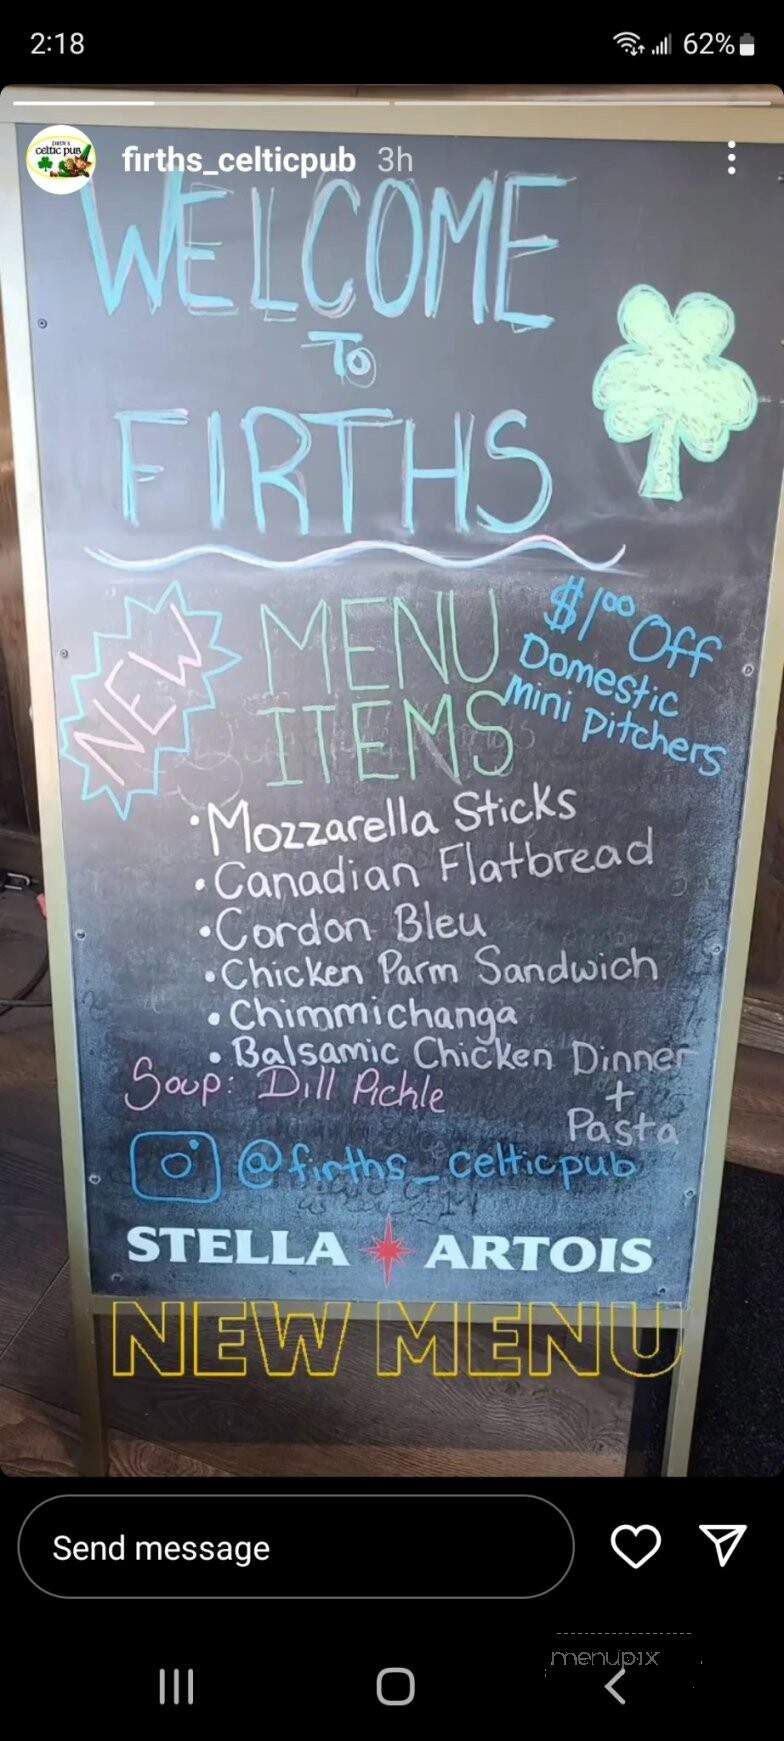 2:18
62%
FIRTH'S
celtic pub
firths_celticpub 3h
WELCOME
To
FIRTHS
NEW
MENU
ITEMS
$1.00 Off
Domestic
Mini Pitchers
• Mozzarella Sticks
• Canadian Flatbread
• Cordon Bleu
• Chicken Parm Sandwich
• Chimmichanga
• Balsamic Chicken Dinner
+
Pasta
Soup: Dill Pickle
@firths_celticpub
STELLA ARTOIS
NEW MENU
Send message
menupix